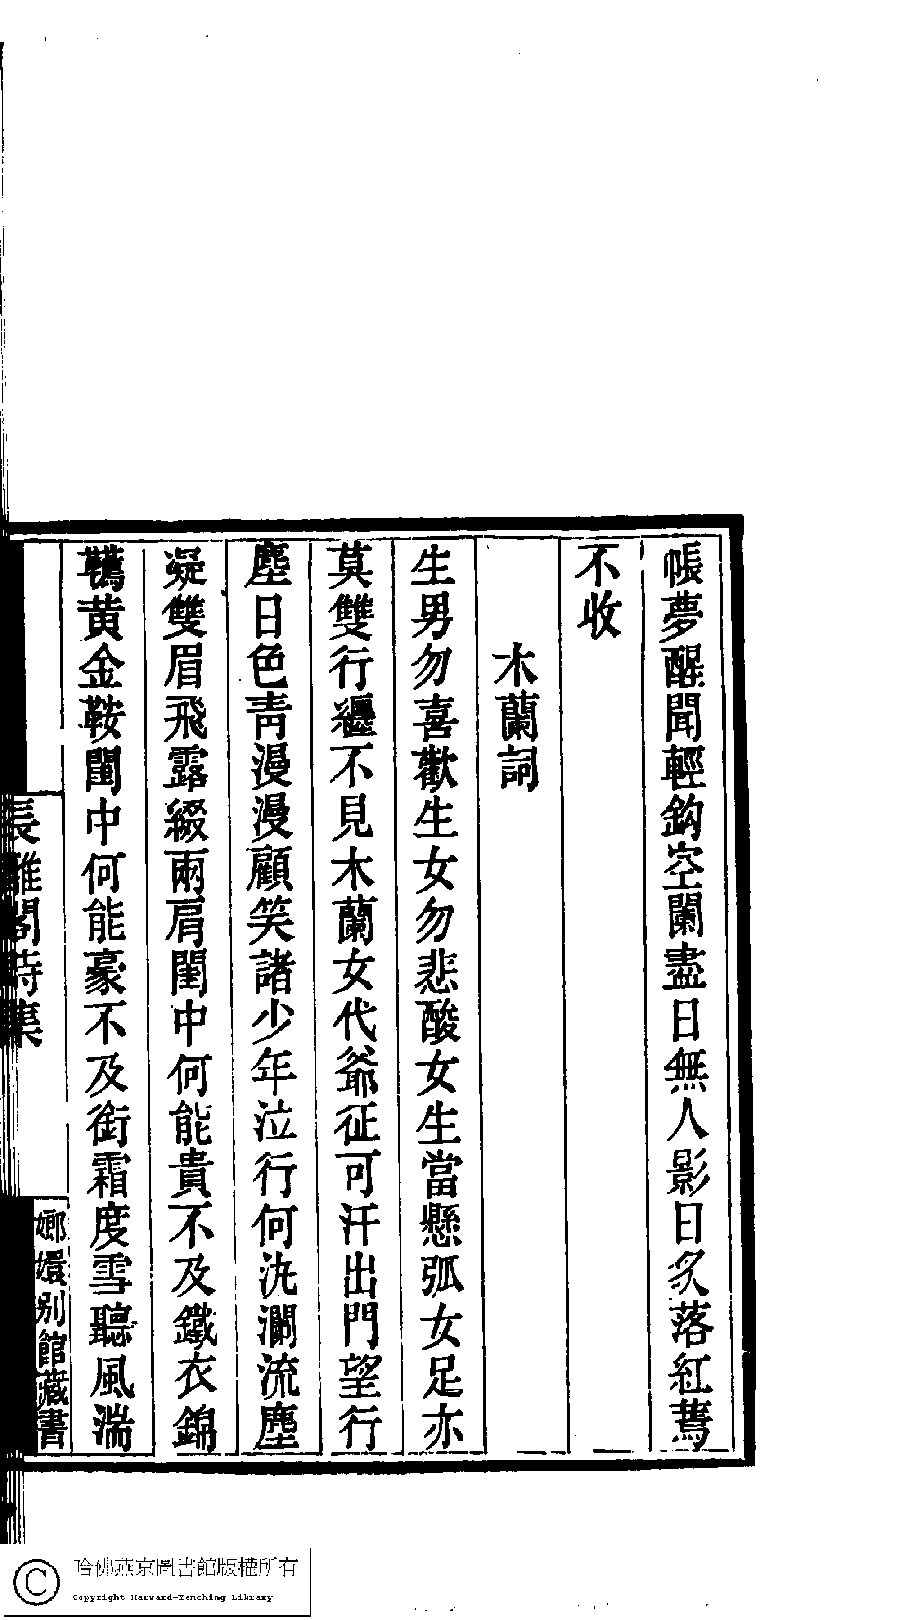 帳夢醒聞輕鈎空闌盡日無人影日炙落紅蔫
不收
木蘭詞
生男勿喜歡生女勿悲酸女生當懸弧女足亦
莫雙行纏不見木蘭女代爺征可汗出門望行
塵日色靑漫漫顧笑諸少年泣行何汍瀾流塵
凝雙眉飛露綴兩肩閨中何能貴不及鐵衣錦
韉黃金鞍閨中何能豪不及銜霜度雪聽風湍
長離閣詩集
嫏嬛別館藏書
哈佛燕京圖書館版權所有
Copyright Harvard-Yenching Library